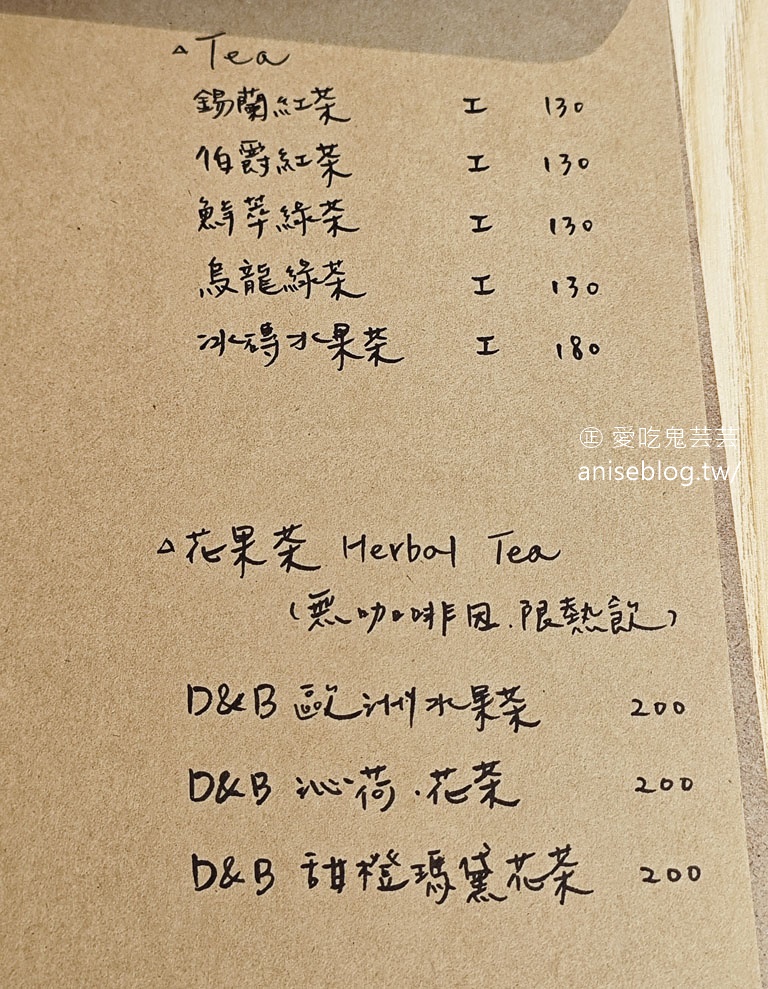 △ Tea
錫蘭紅茶 I 130
伯爵紅茶 I 130
鮮萃綠茶 I 130
烏龍綠茶 I 130
冰磚水果茶 I 180
㊣ 愛吃鬼芸芸
aniseblog.tw/
△ 花果茶 Herbal Tea
(無咖啡因.限熱飲)
D&B 歐洲水果茶 200
D&B 沁荷.花茶 200
D&B 甜橙瑪黛花茶 200